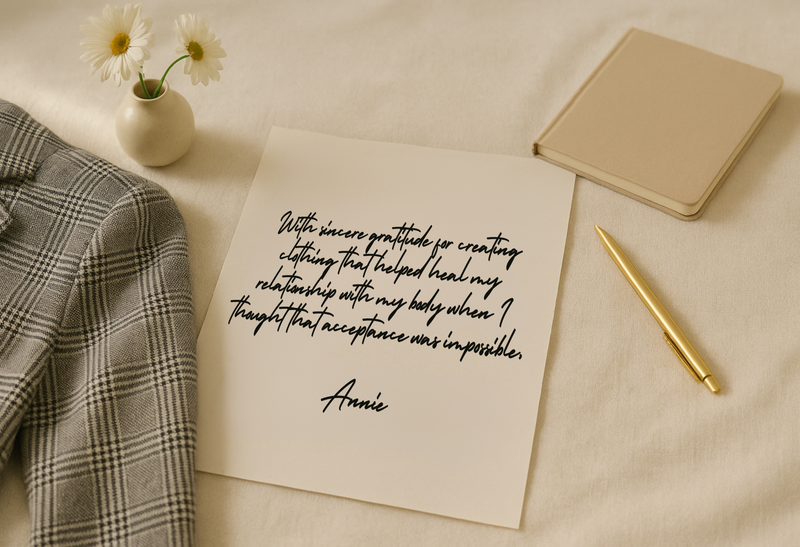 With sincere gratitude for creating
clothing that helped heal my
relationship with my body when I
thought that acceptance was impossible.
Annie